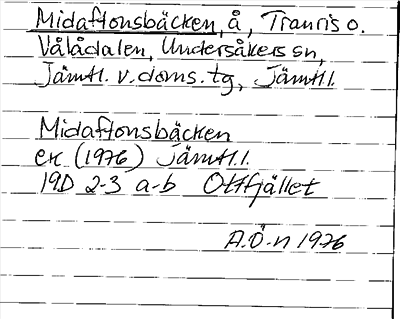 Midaftonsbäcken, å, Tranris o.
Vålådalen, Undersåkers sn,
Jämtl. v. doms. tg, Jämtl l.
Midaftonsbäcken
ek (1976) Jämtl. l.
19D 2-3 a-b Ottfjället
A.Ö-n 1976